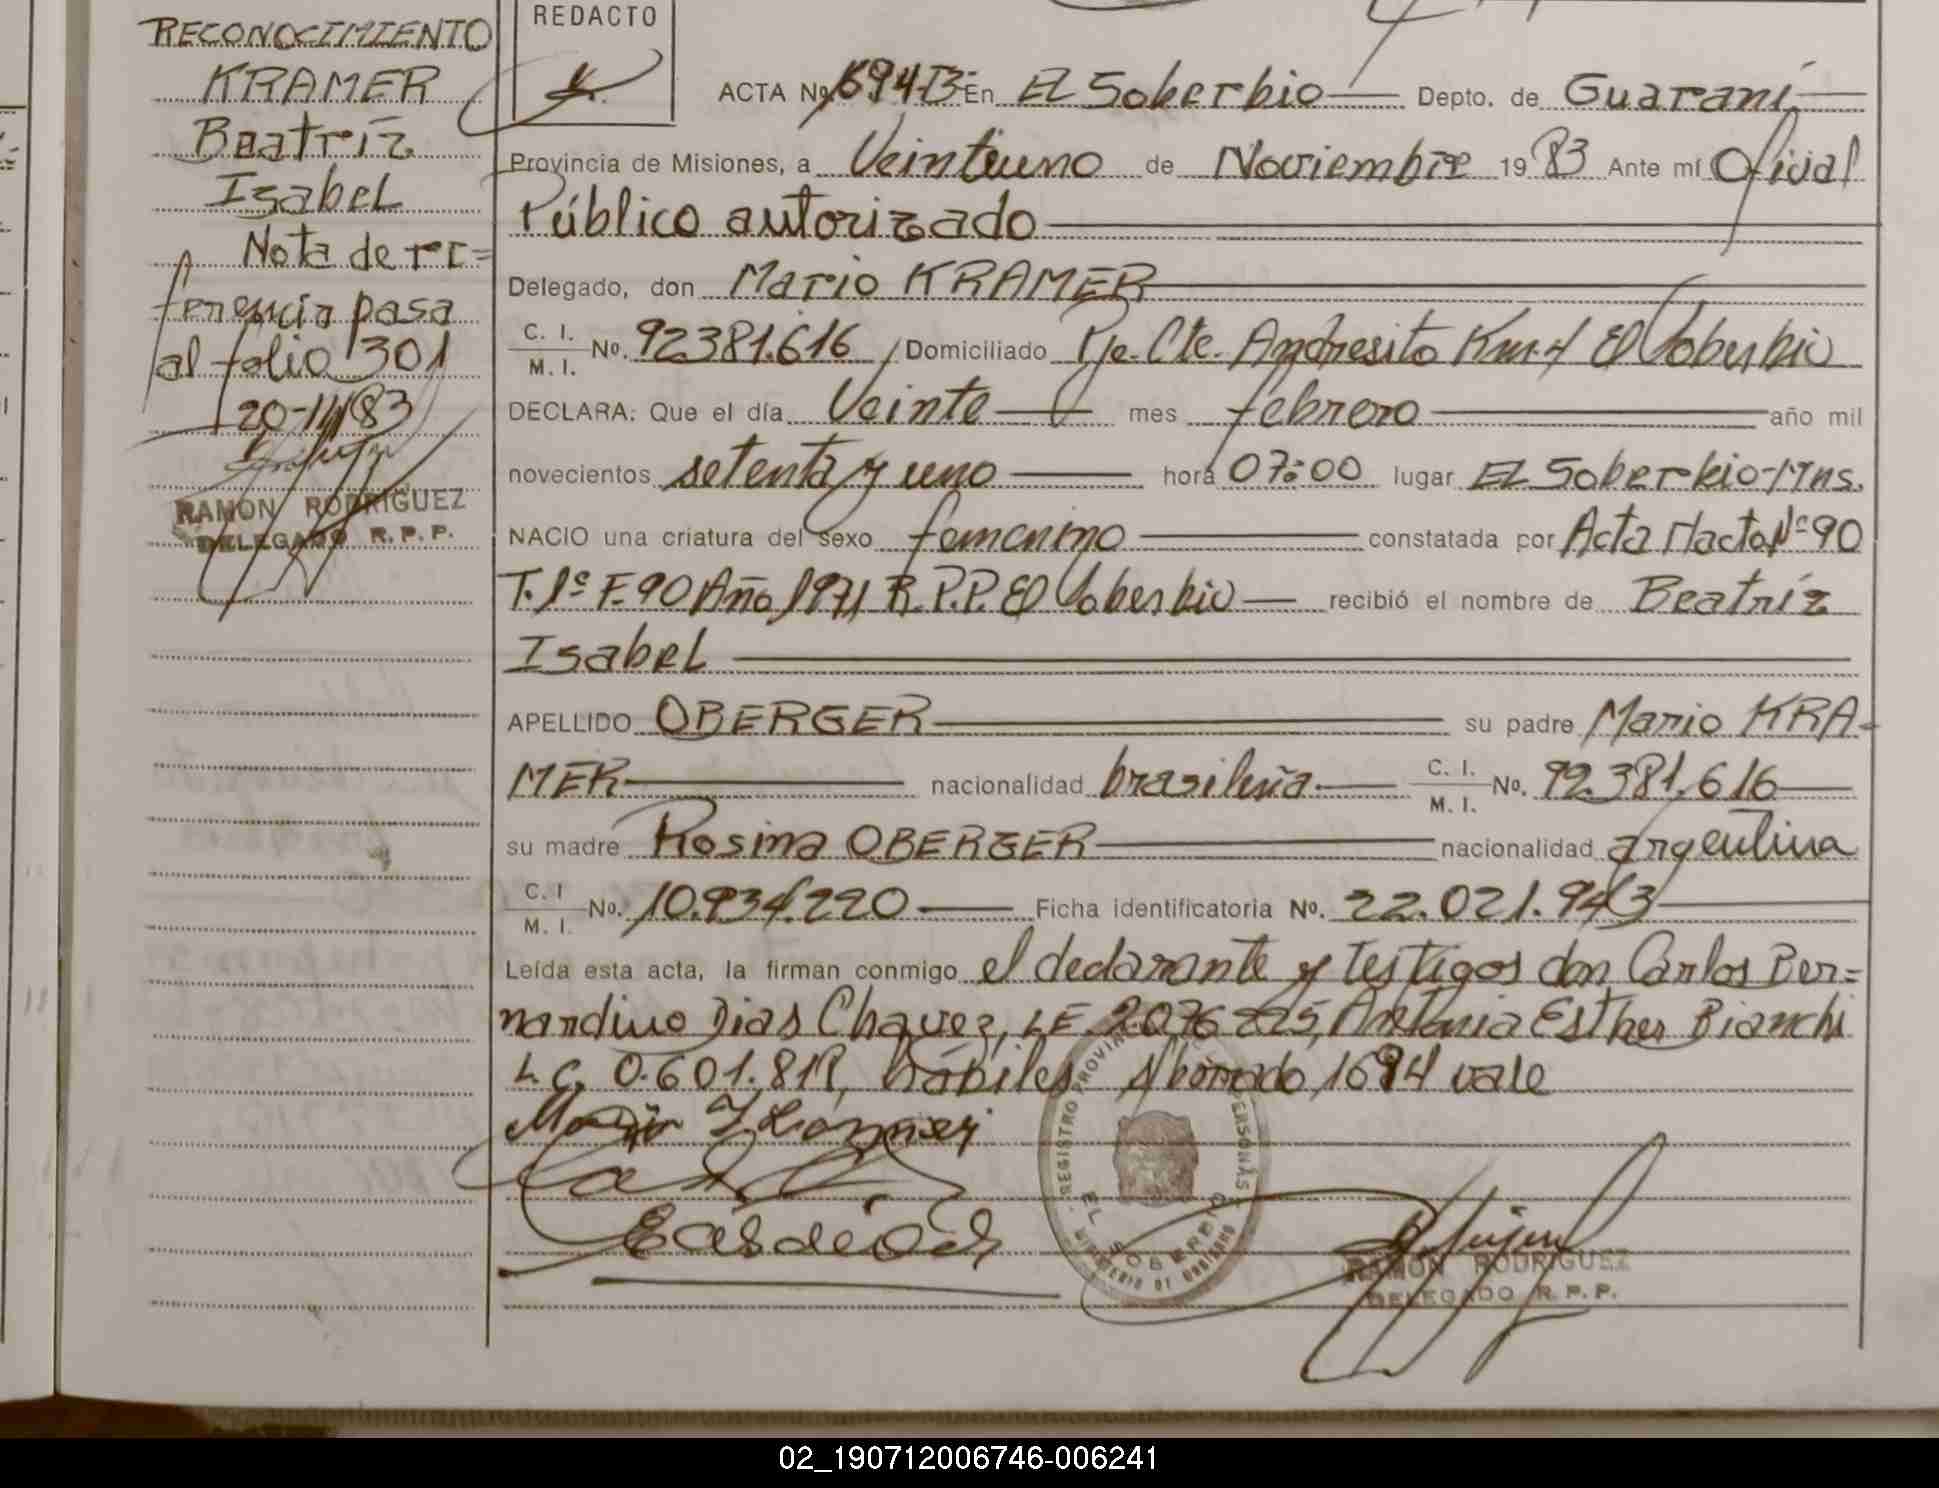 RECONOCIMIENTO
KRAMER
Beatríz
Isabel
Nota de re=
ferencia pasa
al folio 301
20-11-83
RAMON RODRIGUEZ
DELEGADO R. P. P.
REDACTO
ACTA No 1694-B En EL Soberbio Depto. de Guaraní
Provincia de Misiones, a Veintiuno de Noviembre 19 83 Ante mí Oficial
Público autorizado
Delegado, don Mario KRAMER
C. I.
M. I. No. 92.381.616 Domiciliado Pje. Cte. Andresito Km. 4 El Soberbio
DECLARA: Que el día Veinte mes febrero año mil
novecientos setenta y uno hora 07:00 lugar EL Soberbio-Mns.
NACIO una criatura del sexo femenino constatada por Acta Nacto Nº 90
T. 1º F. 90 Año 1971 R.P.P. El Soberbio recibió el nombre de Beatríz
Isabel
APELLIDO OBERGER su padre Mario KRA-
MER nacionalidad brasileña C. I.
M. I. No. 92.381.616
su madre Rosina OBERGER nacionalidad argentina
C. I
M. I. No. 10.934.220 Ficha identificatoria No. 22.021.943
Leída esta acta, la firman conmigo el declarante y testigos don Carlos Ber=
nardino Dias Chavez, L.E. 2.076.225, Antonia Esther Bianchi
L.C. 0.601.818, hábiles Aborrado 1694 vale
REGISTRO PROVINCIAL PERSONAS
EL SOBERBIO
MINISTERIO DE GOBIERNO
RAMON RODRIGUEZ
DELEGADO R. P. P.
02_190712006746-006241